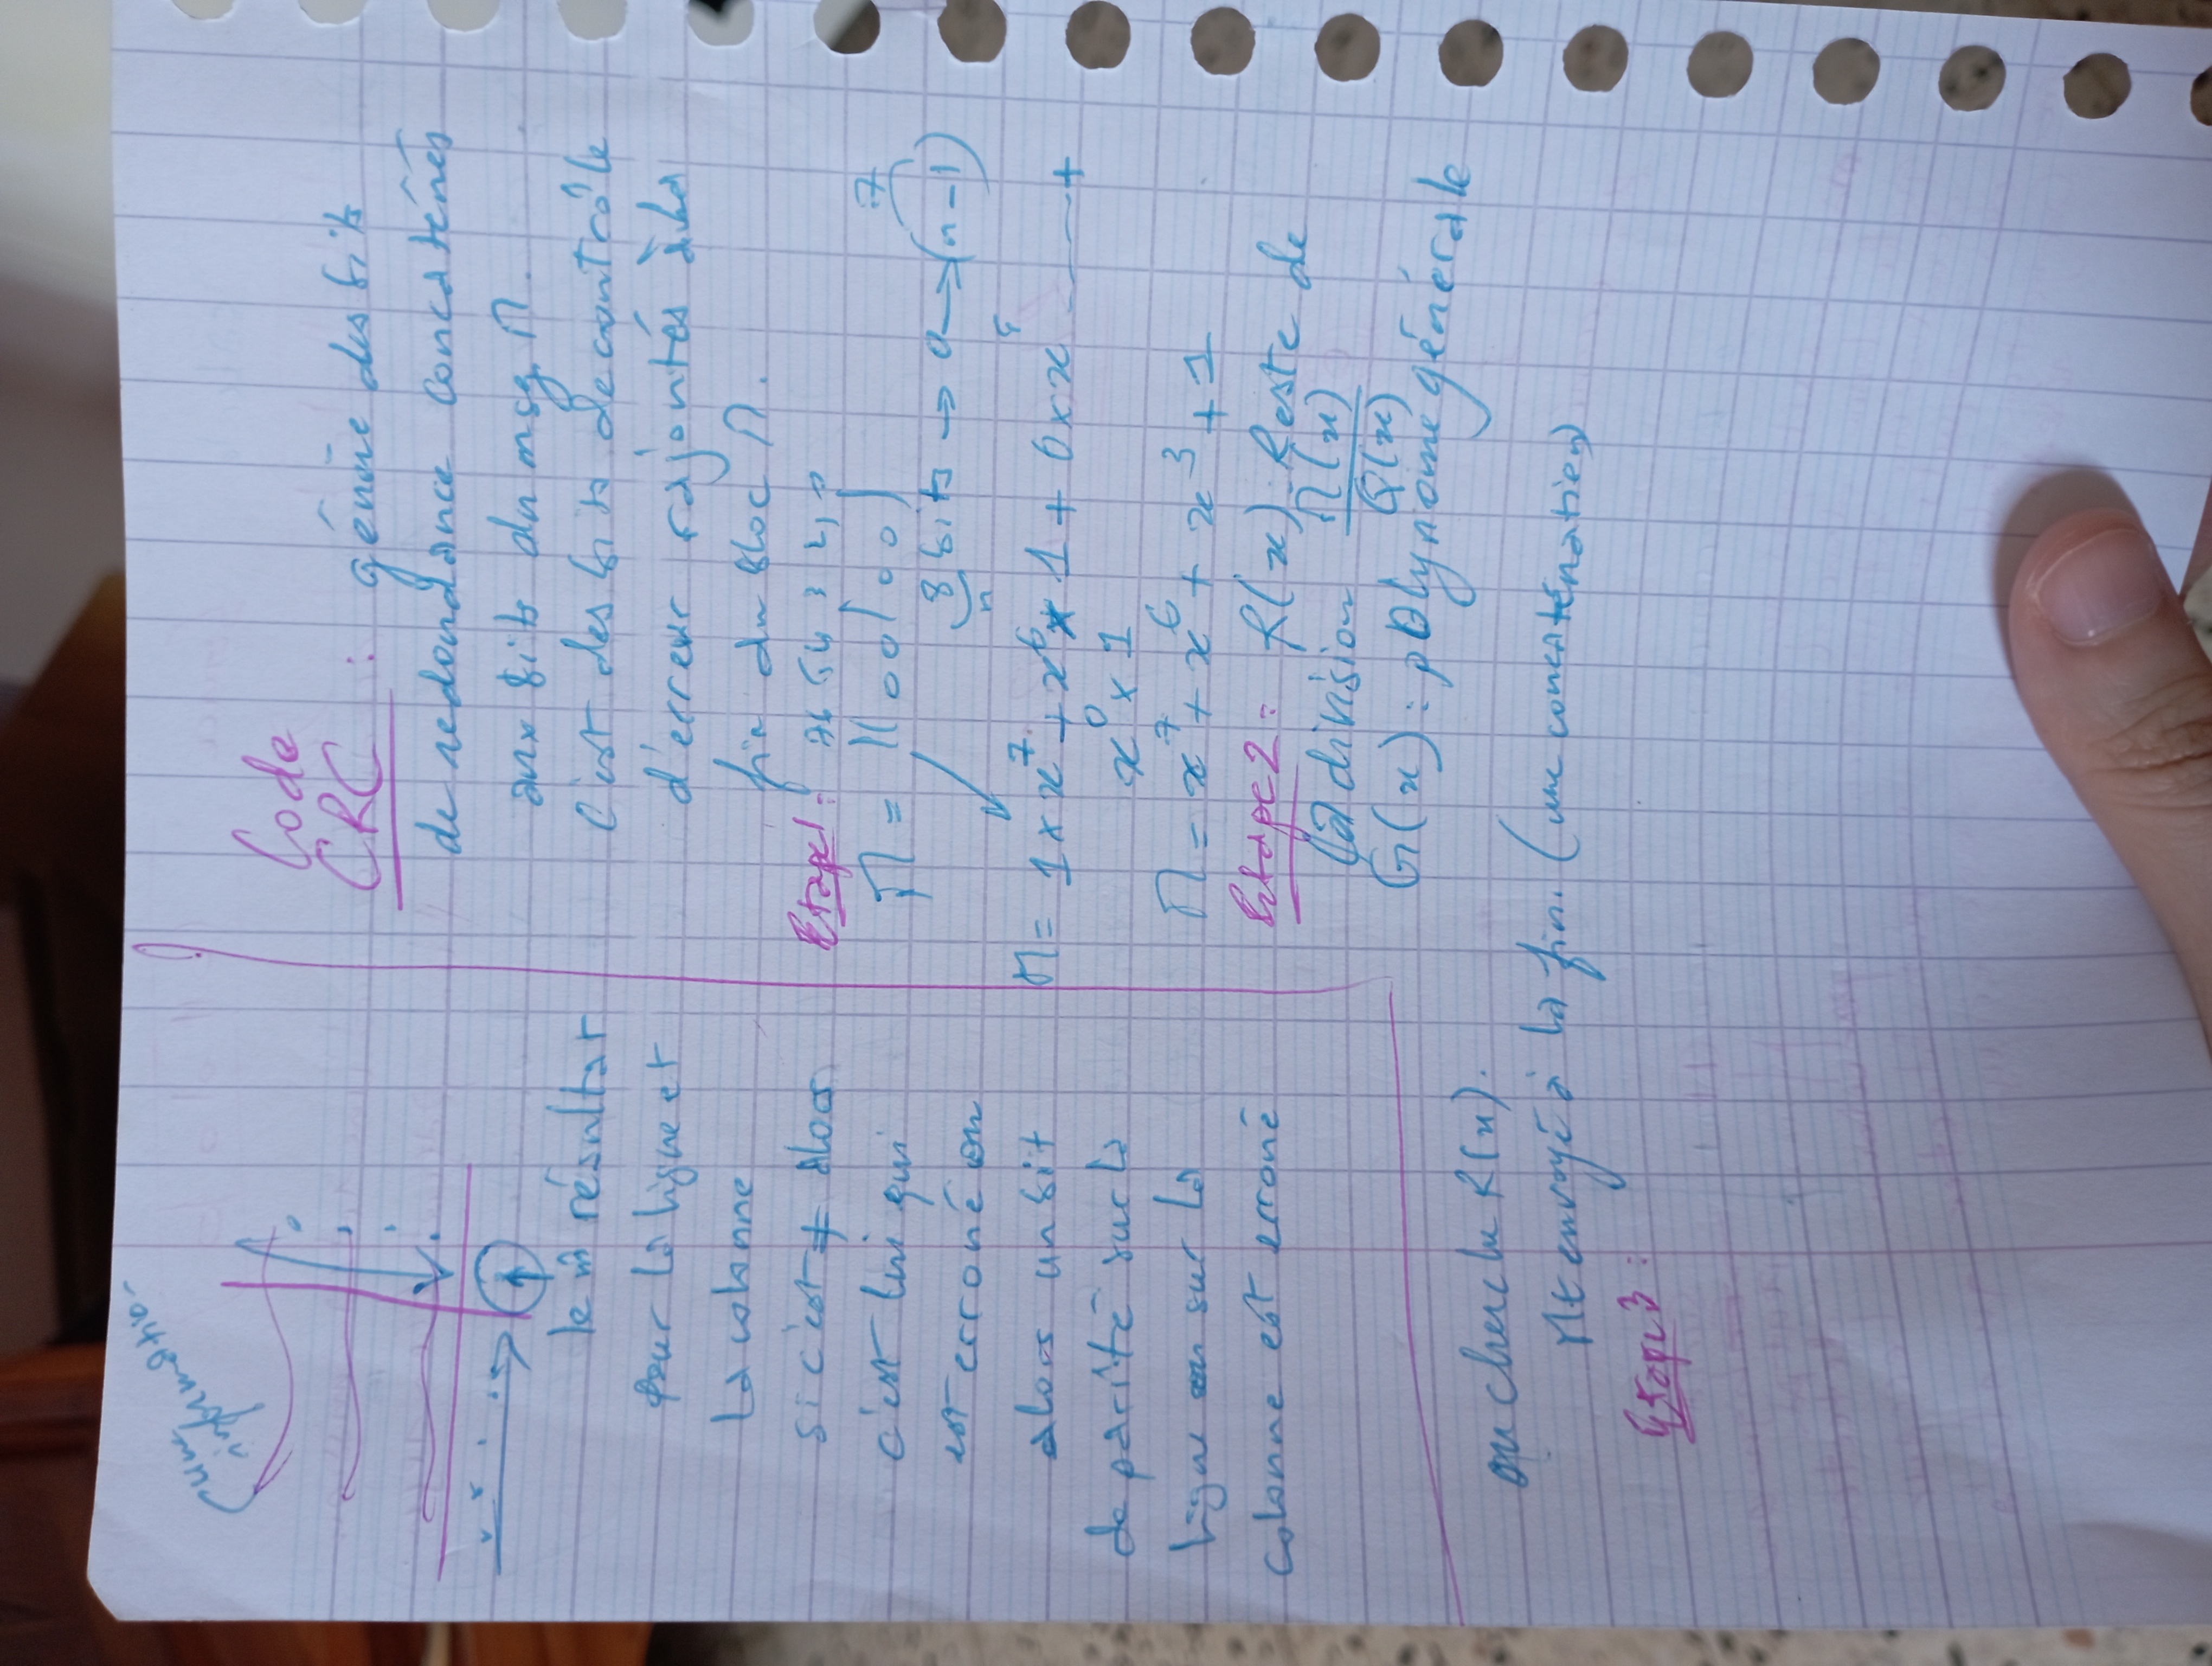 une
information
le m̂ résultat
pour la ligne et
la colonne
si c'est ≠ alors
c'est lui qui
est erroné ou
alors un bit
de parité sur la
ligne ou sur la
colonne est erroné
Code
CRC : génère des bits
de redondance concaténés
aux bits du msg M.
c'est des bits de contrôle
d'erreur rajoutés à la
fin du bloc M.
Etape1: 76 54 3 2 1 0
M = 11001001
7
8 bits → 0 → (n-1)
n
M = 1 × x⁷ + x⁶ × 1 + 0 × x⁵ ------ +
x⁰ × 1
M = x⁷ + x⁶ + x³ + 1
Etape2: R(x): Reste de
la division M(x)/G(x)
G(x): polynome générale
on cherche R(x).
Mt envoyé à la fin. (une concaténation)
Etape3: